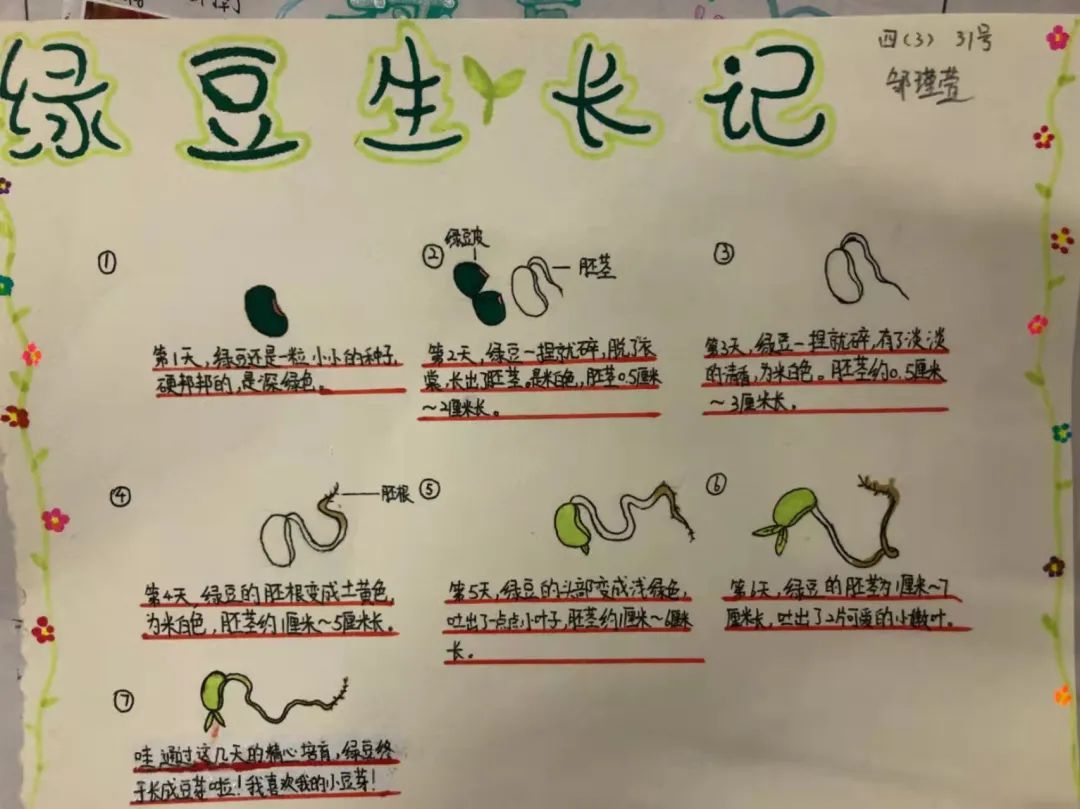 四(3) 31号
邹瑾萱
绿豆生长记
①
第1天,绿豆还是一粒小小的种子,
硬邦邦的,是深绿色。
②
绿豆皮
胚茎
第2天,绿豆一捏就碎,脱了衣
裳,长出了胚茎。是米白色,胚茎0.5厘米
～2厘米长。
③
第3天,绿豆一捏就碎,有了淡淡
的清香,为米白色。胚茎约0.5厘米
～3厘米长。
④
胚根
第4天,绿豆的胚根变成土黄色,
为米白色,胚茎约1厘米～5厘米长。
⑤
第5天,绿豆的头部变成浅绿色,
吐出了一点点小叶子,胚茎约1厘米～6厘米
长。
⑥
第6天,绿豆的胚茎为1厘米～7
厘米长,吐出了2片可爱的小嫩叶。
⑦
哇,通过这几天的精心培育,绿豆终
于长成豆芽啦!我喜欢我的小豆芽!